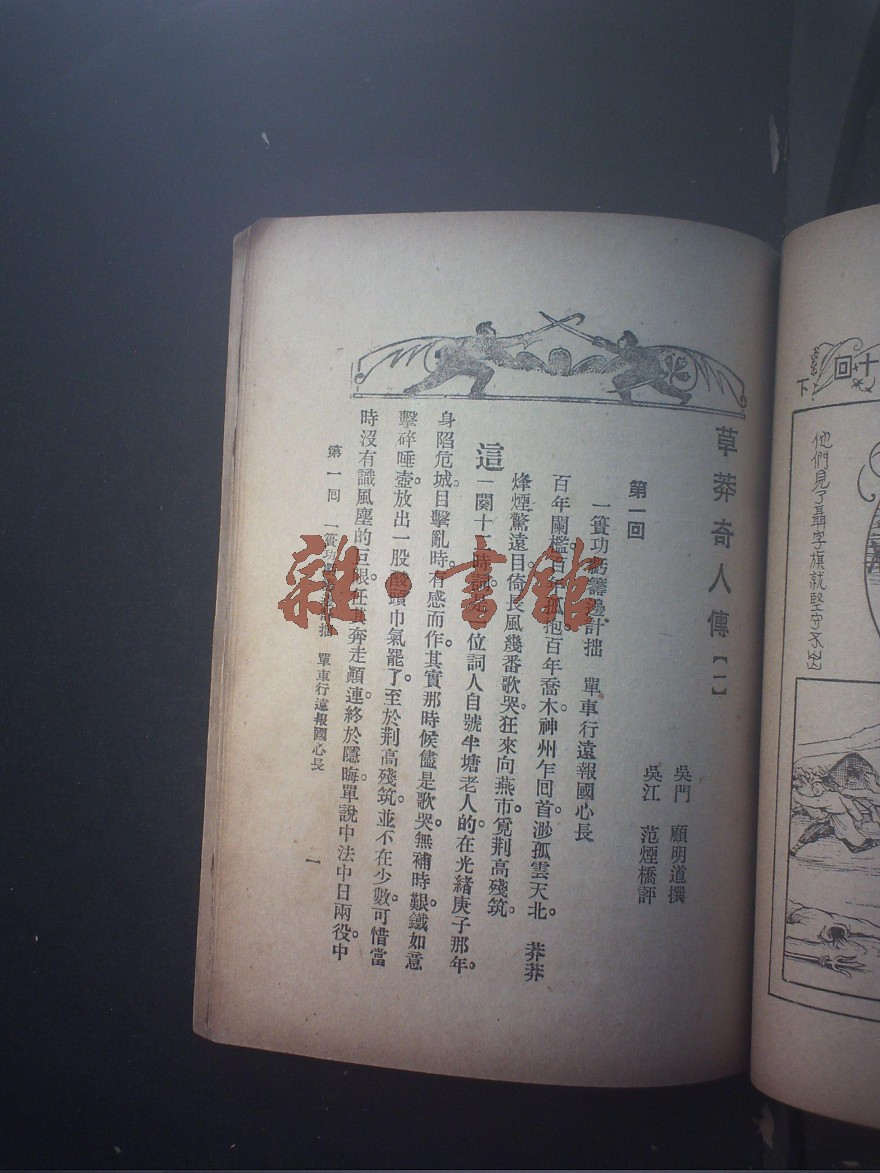 草莽奇人傳【一】
吳門　顧明道撰
吳江　范煙橋評
第一回
一簣功虧籌邊計拙　單車行遠報國心長
百年闌檻百年抱。百年喬木神州乍回首渺孤雲天北。莽莽
烽煙驚遠目倚長風幾番歌哭狂來向燕市覓荆高殘筑。
這一闋十二時詞是一位詞人自號半塘老人的在光緒庚子那年。
身陷危城。目擊亂時有感而作。其實那時候儘是歌哭無補時艱鐵如意
擊碎唾壺。放出一股酸頭巾氣罷了至於荆高殘筑。並不在少數。可惜當
時沒有識風塵的巨眼。任其奔走顛連。終於隱晦。單說中法中日兩役。中
第一回　一簣功虧籌邊計拙　單車行遠報國心長
一
十回
下
他們見了聶字旗就堅守不出
雜·書館